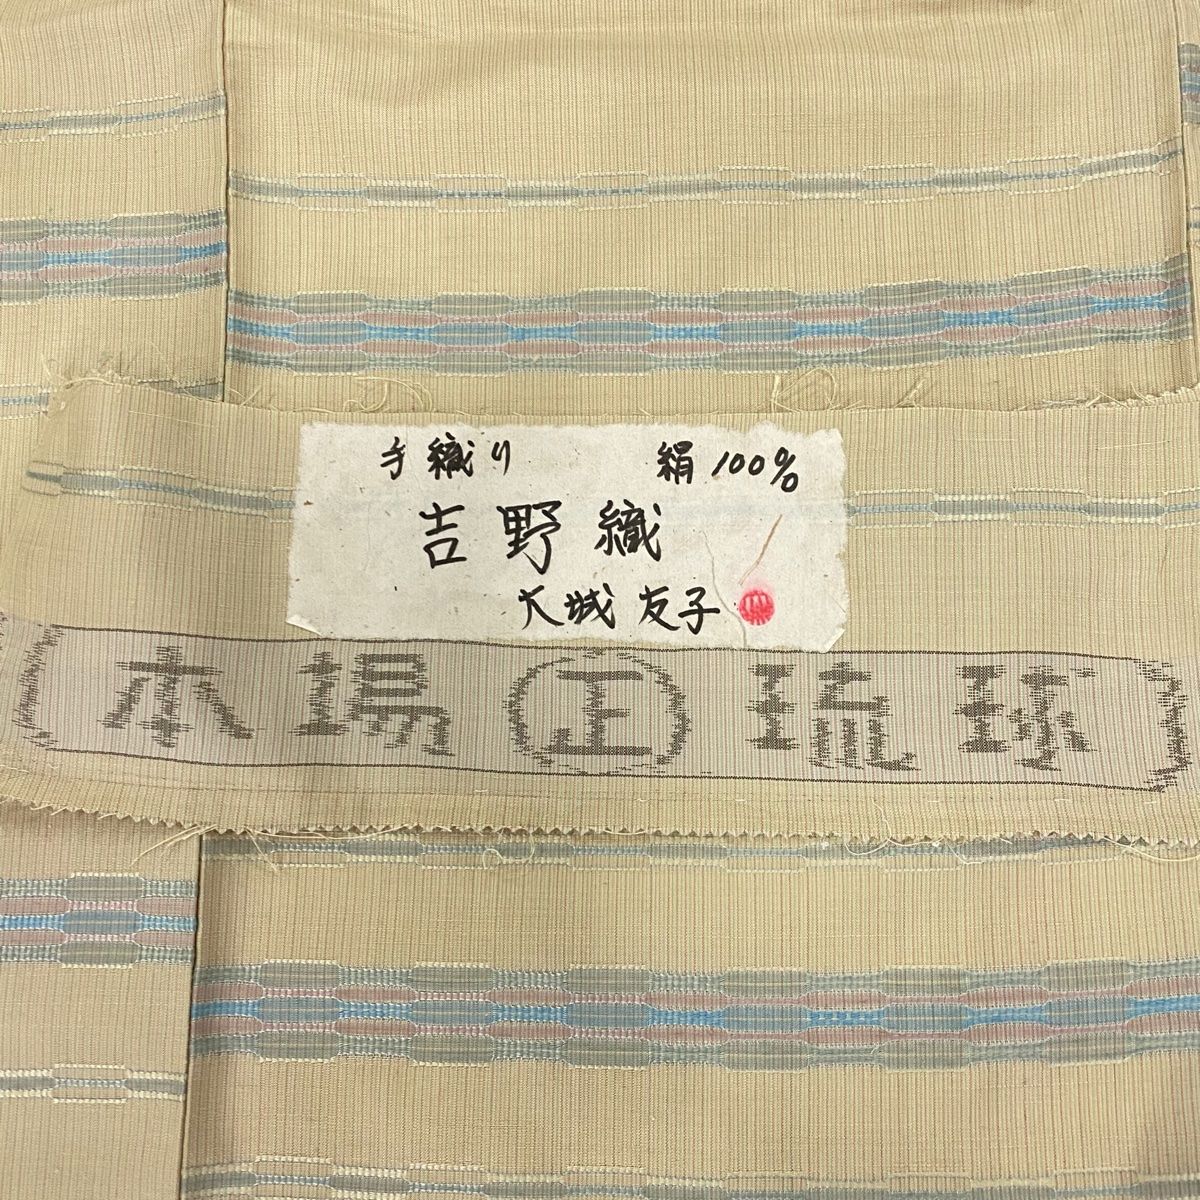 手織り 絹100%
吉野織
大城友子
本場 正 琉球